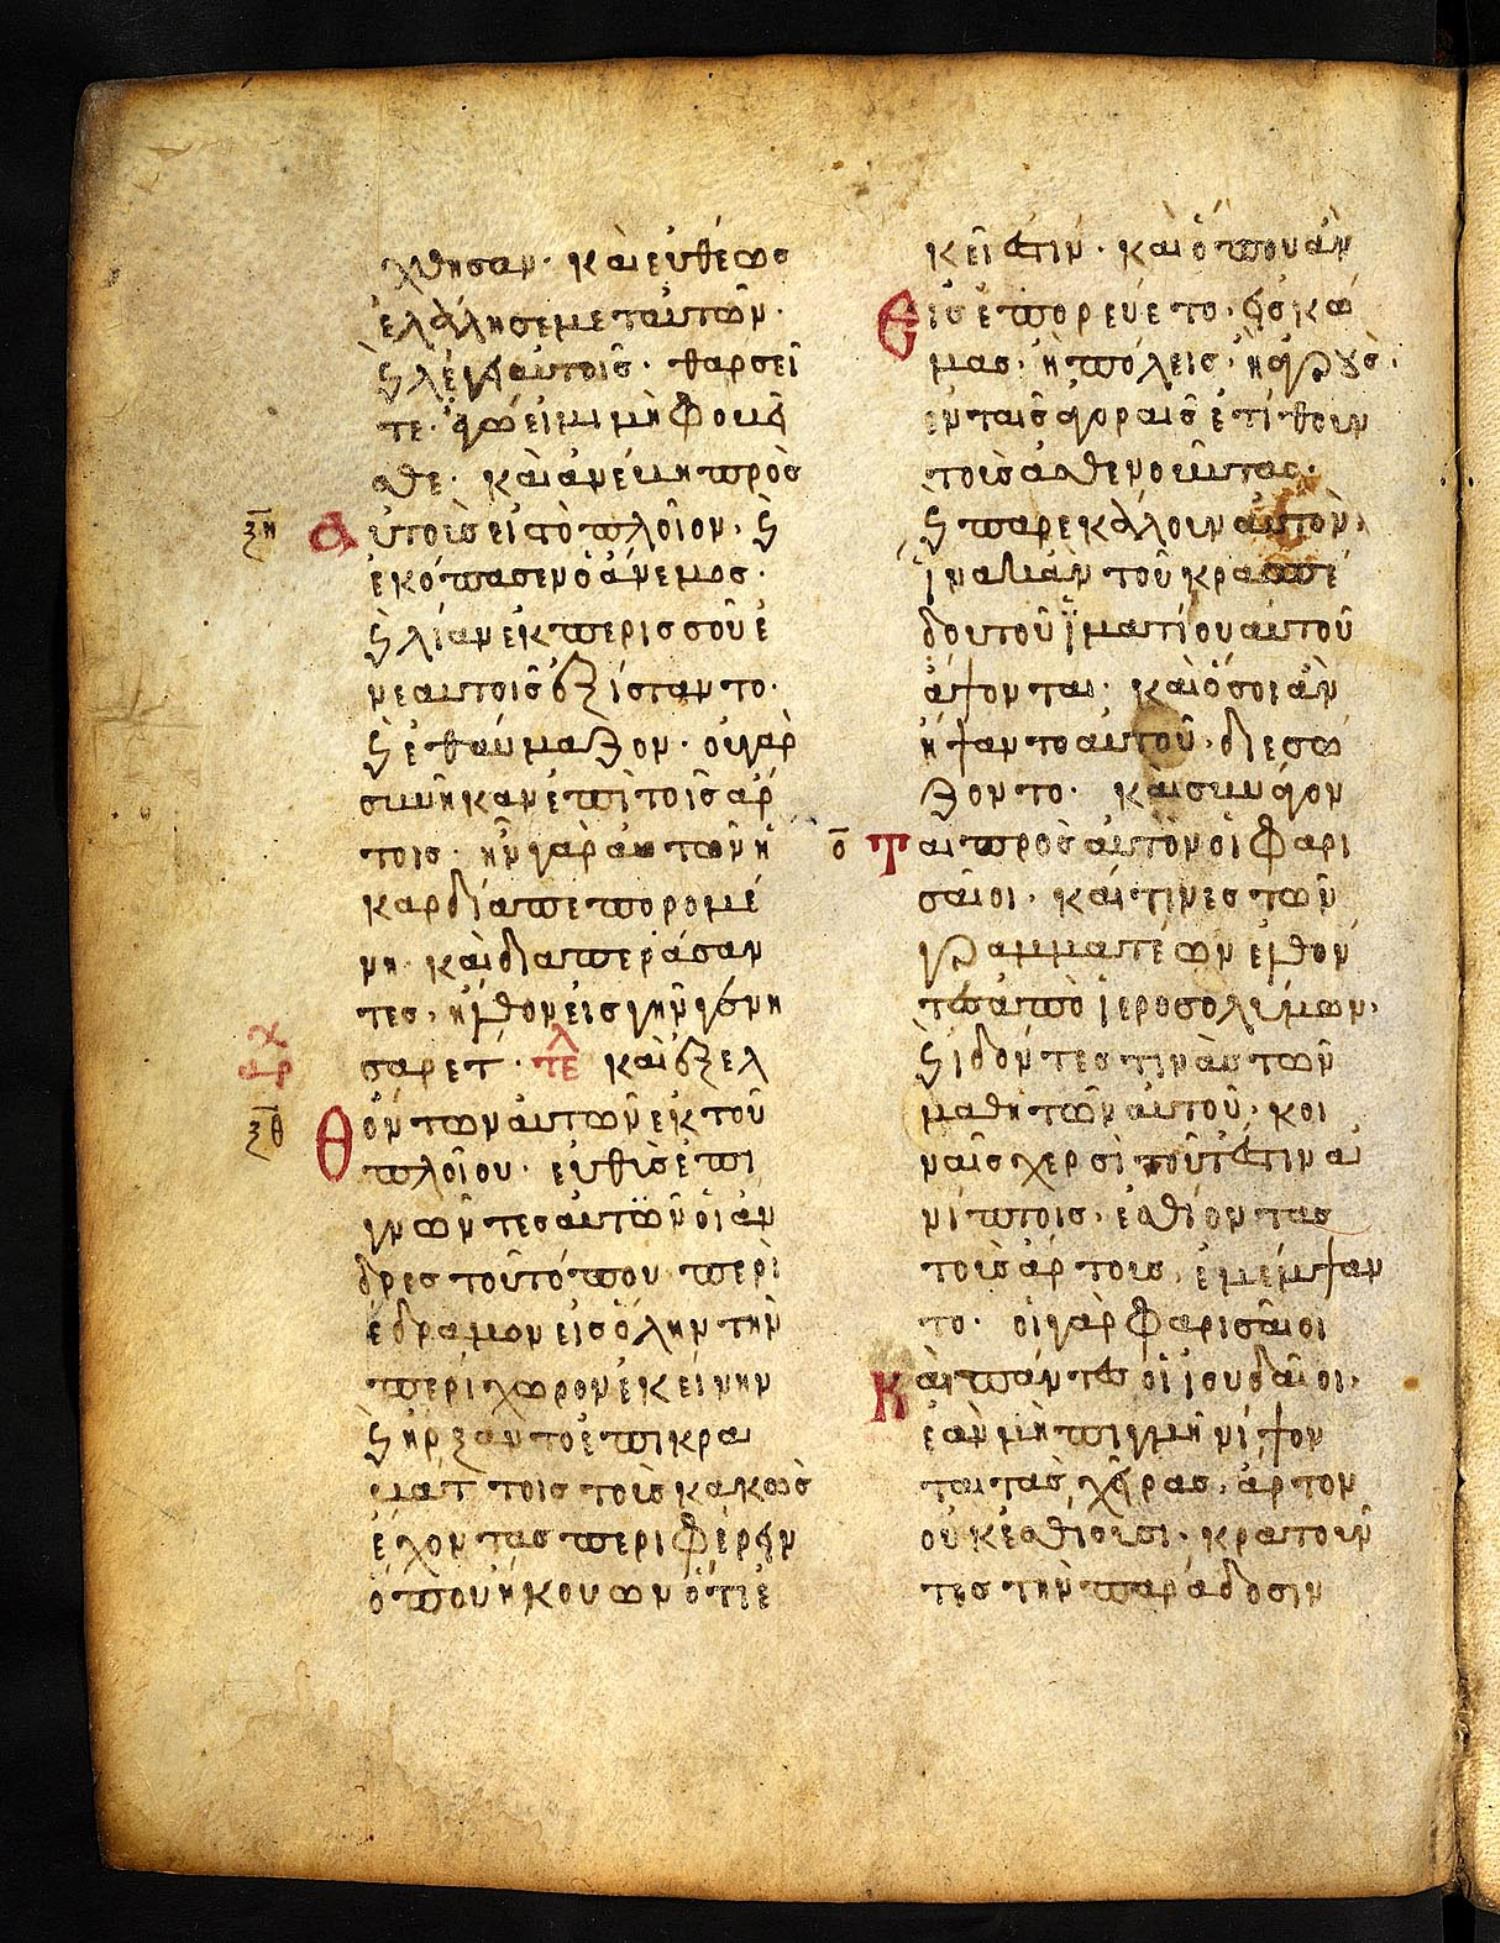 χθησαν· καὶ εὐθέως
ἐλάλησε μετ αυτῶν·
ϗ λέγει αὐτοῖς· θαρσεῖ
τε· ἐγώ εἰμι μὴ φοβεῖ
σθε· καὶ ἀνέβη πρὸς
ξη αὐτοὺς εἰς τὸ πλοῖον· ϗ
ἐκόπασεν ὁ ἄνεμος·
ϗ λίαν ἐκ περισσοῦ ἐ
ν εαυτοῖς ἐξίσταντο·
ϗ ἐθαύμαζον· οὐ γὰρ
συνῆκαν ἐπὶ τοῖς ἄρ
τοις· ἦν γὰρ αυτῶν ἡ
καρδία πεπορομέ
νη· καὶ διαπεράσαν
τες, ἦλθον εἰς γῆν γένη
χ
αρ
σαρετ· τελ καὶ ἐξελ
ξθ θόντων αὐτῶν ἐκ τοῦ
πλοίου· εὐθὺς ἐπι
γνῶντες αὐτὸν οἱ ἄν
δρες τοῦ τόπου περὶ
έδραμον εἰς ὅλην τὴν
περίχωρον ἐκείνην
ϗ ἤρξαντο ἐπι κρα
βάτ τοις τοὺς κακῶς
ἔχοντας περιφέρειν
ὅπου ἤκουων ὅτι ἐ
κεῖ ἐστιν· καὶ ὅπου ἂν
εἰσεπορεύετο· εἰς κώ
μας· ἢ πόλεις· ἢ ἀγρούς·
ἐν ταῖς ἀγοραῖς ἐτίθουν
τοὺς ἀσθενοῦντας·
ϗ παρεκάλουν αὐτὸν,
ἵνα κἂν τοῦ κρασπέ
δου τοῦ ἱματίου αὐτοῦ
ἅψονται· καὶ ὅσοι ἂν
ἥψαντο αὐτοῦ, διεσώ
ζοντο· καὶ συνάγον
ο ται πρὸς αὐτὸν οἱ φαρι
σαῖοι· καί τινες τῶν
γραμματέων ἐλθόν
τες ἀπὸ ἱεροσολύμων·
ϗ ἰδόντες τινὰς τῶν
μαθητῶν αὐτοῦ, κοι
ναῖς χερσὶ τοῦτέστιν ἀ
νίπτοις, ἐσθίοντας
τοὺς ἄρτους, ἐμέμψαν
το· οἱ γὰρ φαρισαῖοι
καὶ πάντες οἱ ἰουδαῖοι,
ἐὰν μὴ πιγμῆ νίψον
ται τὰς χεῖρας, ἄρτον
οὐκ ἐσθίουσι· κρατοῦν
τες τὴν παράδοσιν